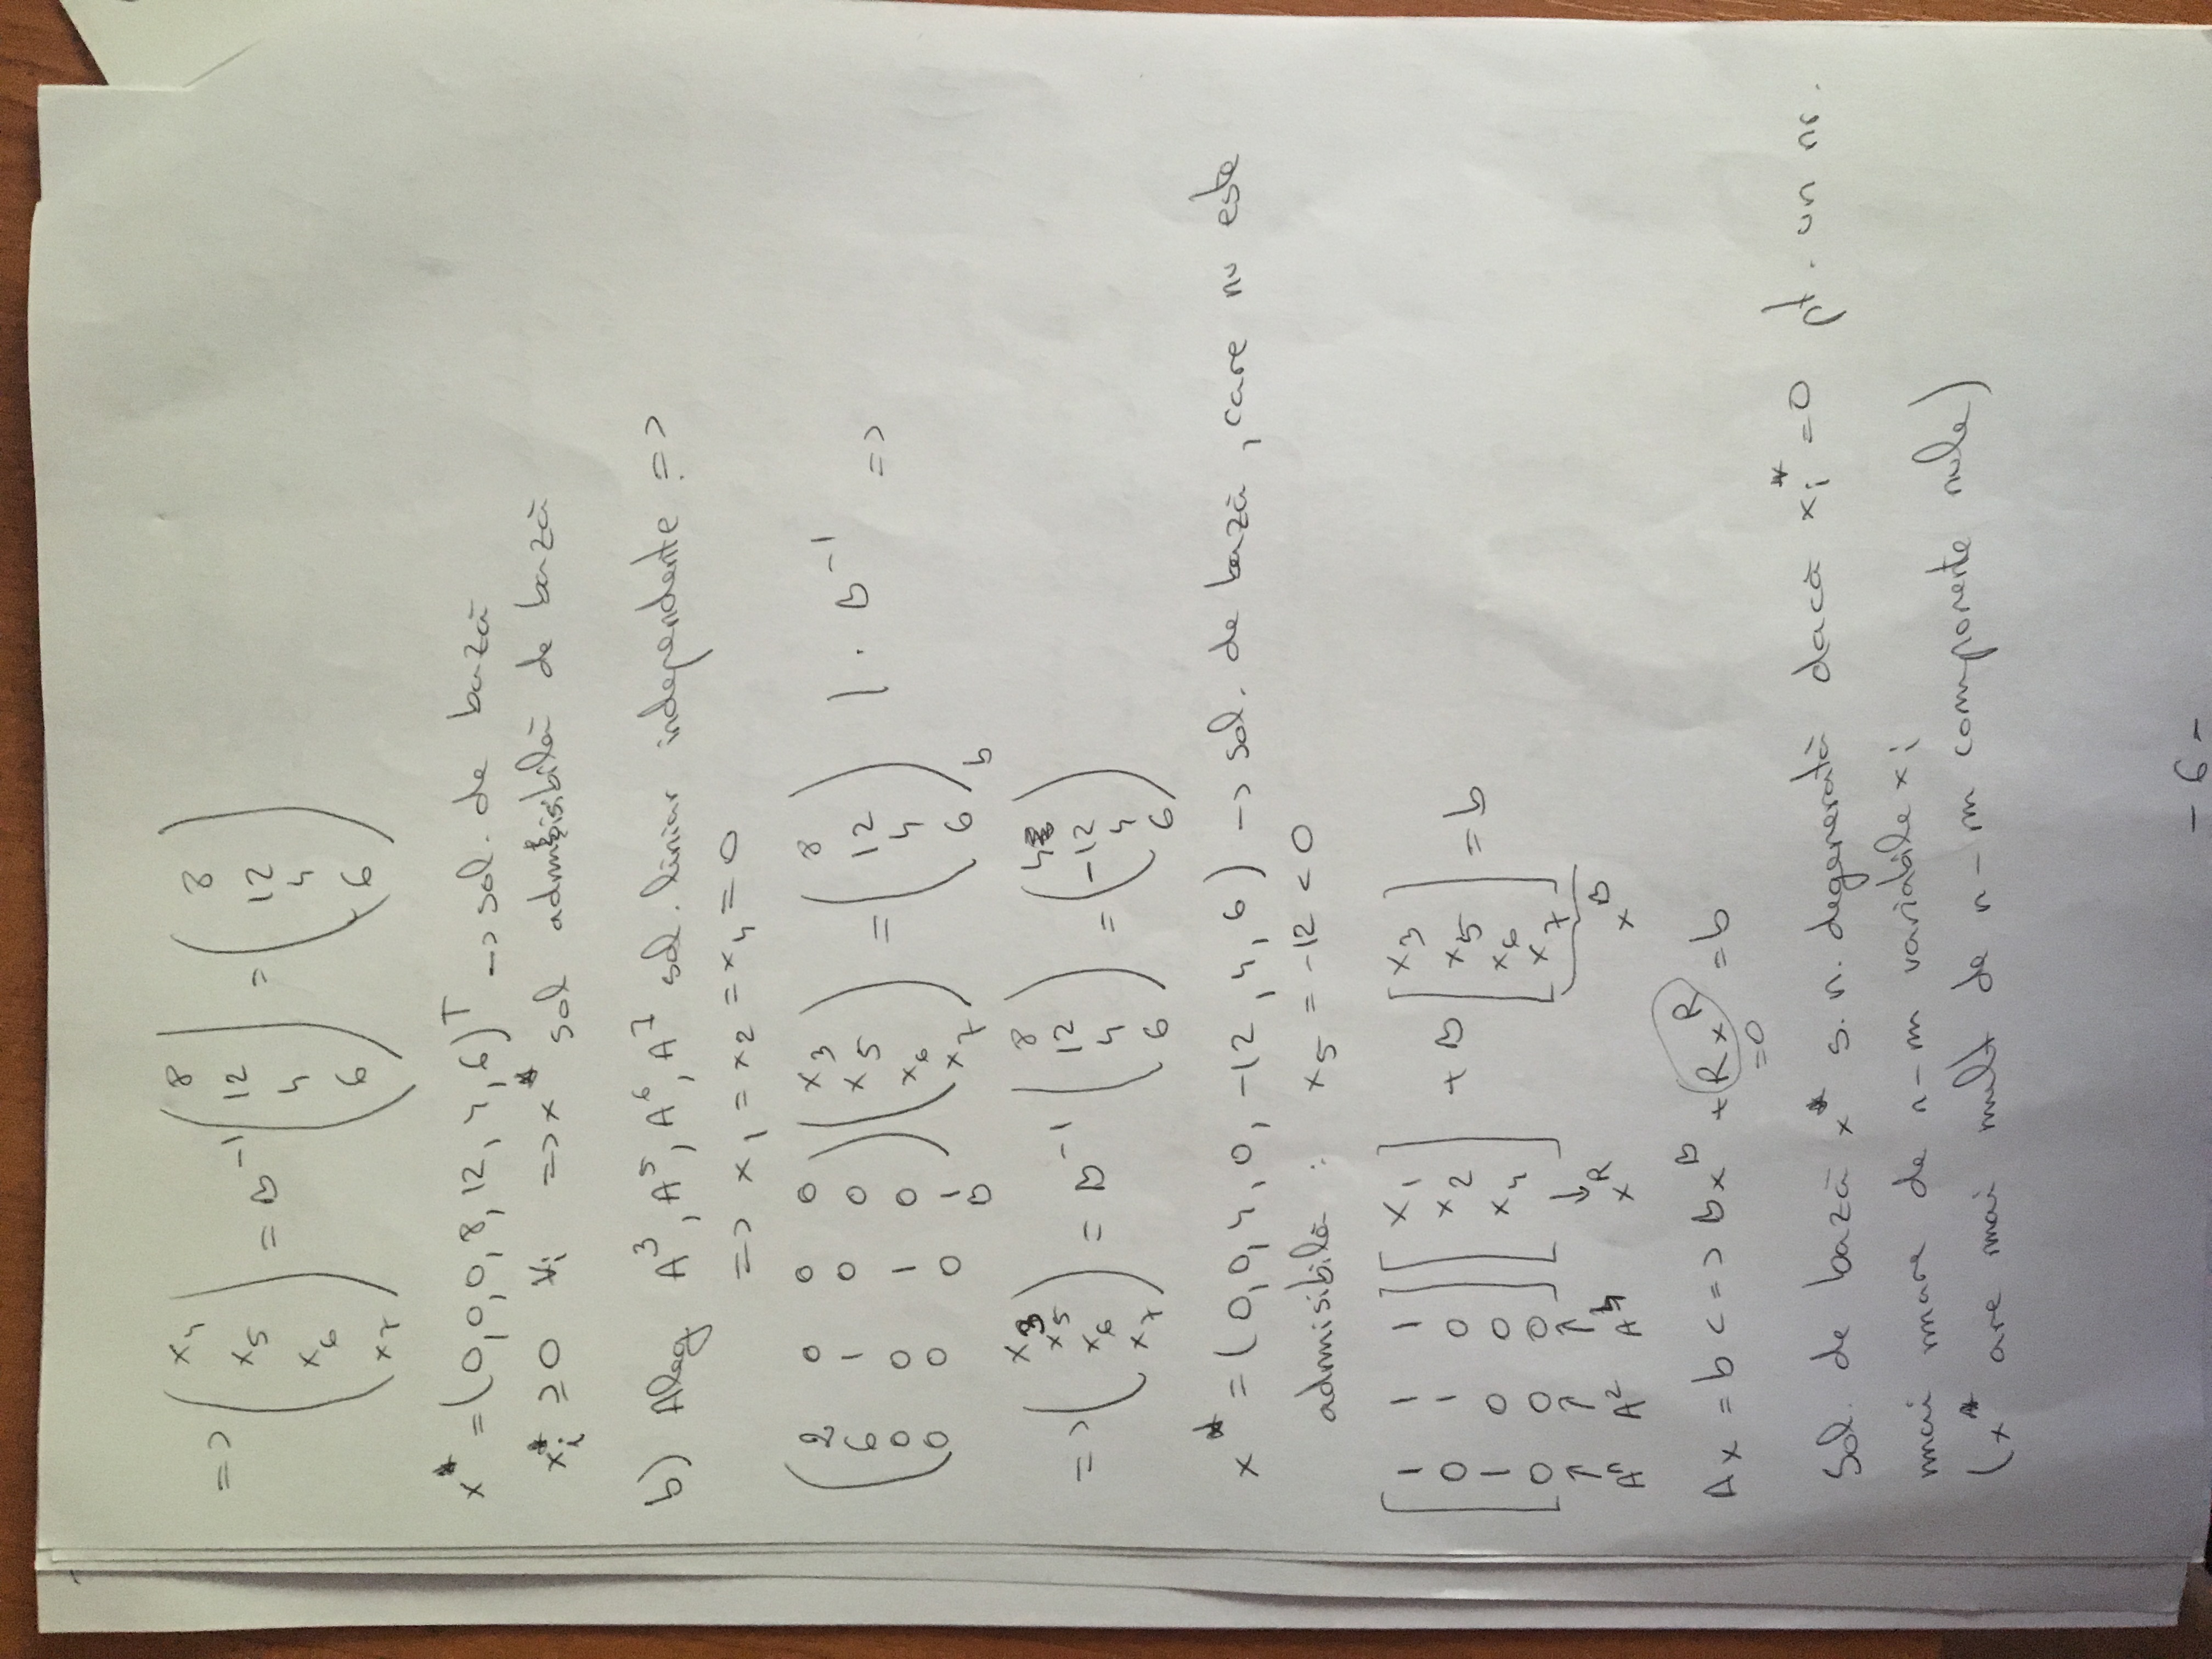 => (x4 x5 x6 x7) = B⁻¹ (8 12 4 6) = (8 12 4 6)
x* = (0,0,0,8,12,4,6)ᵀ -> sol. de bază
xi* ≥ 0 ∀i => x* sol admisibilă de bază
b) Aleg A³, A⁵, A⁶, A⁷ sol. liniar independente =>
=> x1 = x2 = x4 = 0
(2 0 0 0
6 1 0 0
0 0 1 0
0 0 0 1) B (x3 x5 x6 x7) = (8 12 4 6) b | · B⁻¹ =>
=> (x3 x5 x6 x7) = B⁻¹ (8 12 4 6) = (4 -12 4 6)
x* = (0,0,4,0,-12,4,6) -> sol. de bază, care nu este
admisibilă : x5 = -12 < 0
[1 1 1
0 1 0
1 0 0
0 0 0] [x1 x2 x4] + B [x3 x5 x6 x7] = b
↑ ↑ ↑ ↓
A¹ A² A⁴ xᴿ xᴮ
Ax = b <=> Bxᴮ + Rxᴿ = b
=0
Sol. de bază x* s.n. degenerată dacă xi* = 0 pt. un nr.
mai mare de n-m variabile xi
(x* are mai mult de n-m componente nule)
- 6 -